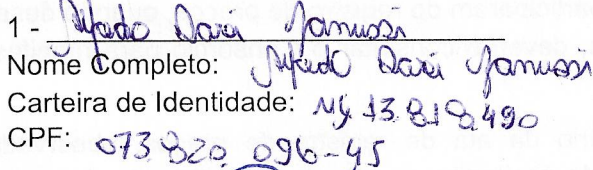 1 - Alfredo Davi Janussi
Nome Completo: Alfredo Davi Janussi
Carteira de Identidade: MG 13.818.490
CPF: 073.820.096-45